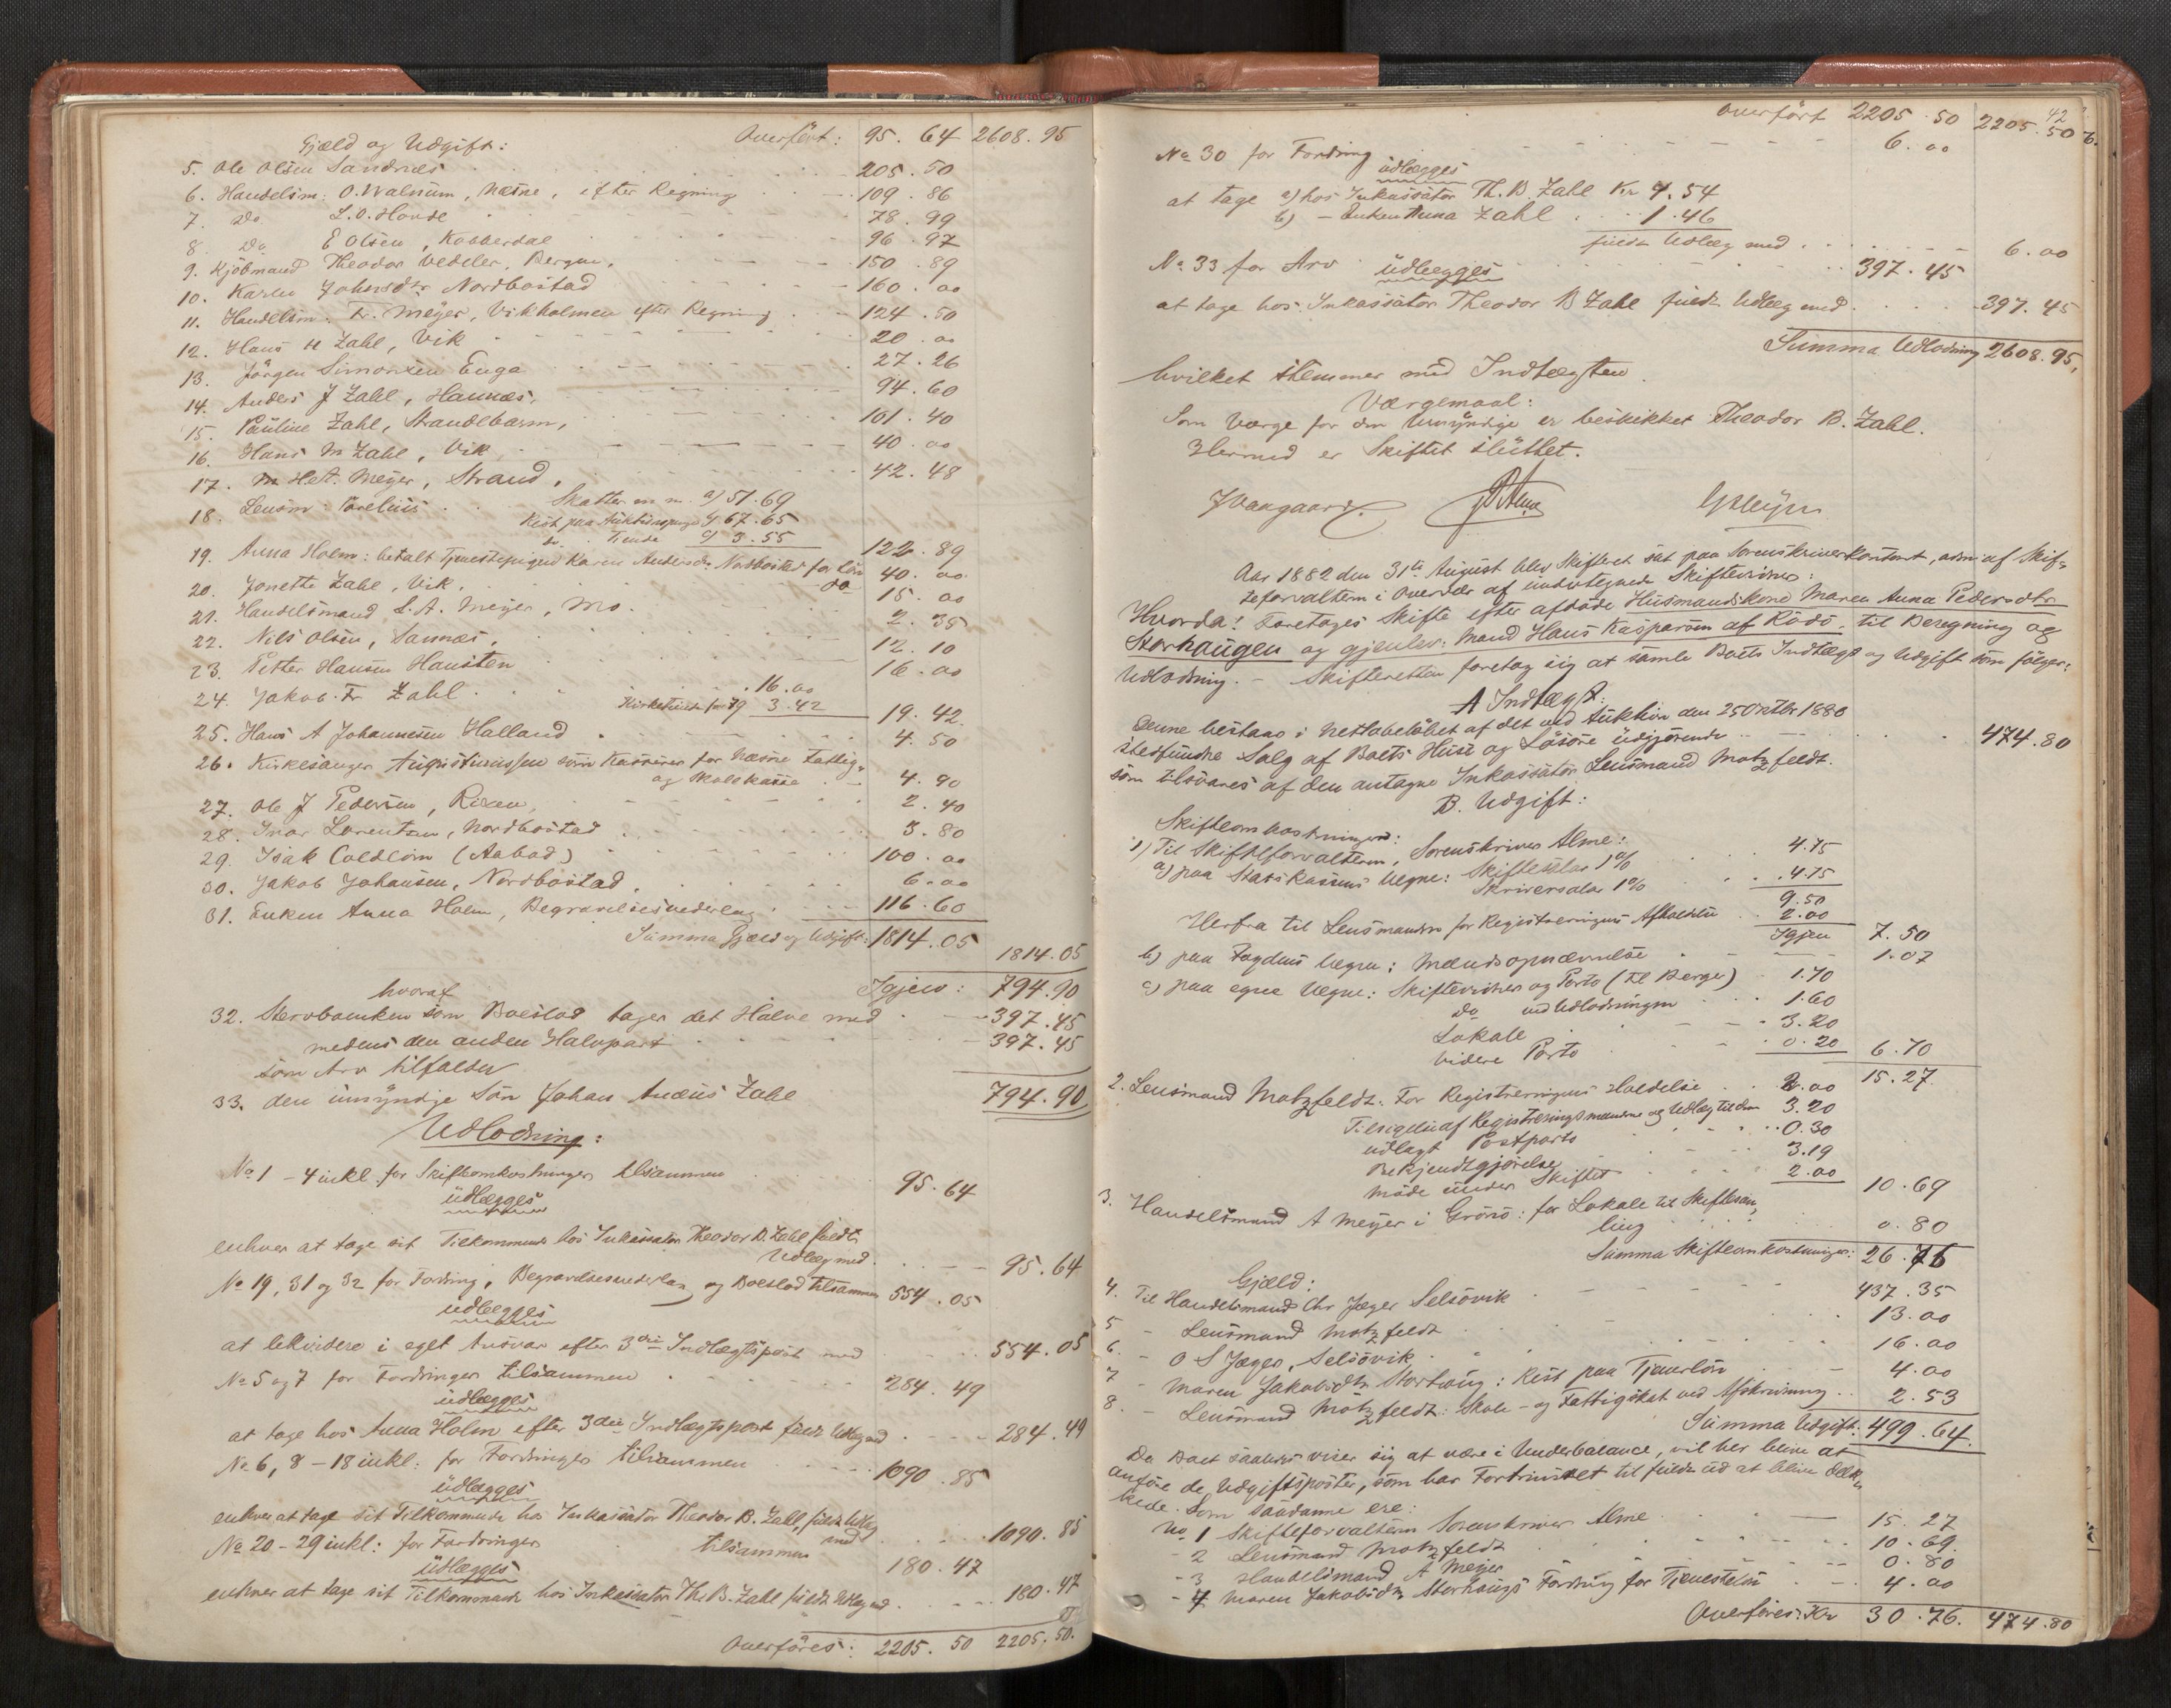 Gjæld og Udgift: Overført: 95.64 2608.95
5. Ole Olsen Sandnæs 205.50
6. Handelsm: O. Walnum, Næsne, efter Regning 109.86
7. Do L.O. Hovde 78.99
8. Do E Olsen, Kobberdal 96.97
9. Kjöbmand Theodor Vedeler, Bergen, 150.89
10. Karen Johnsdtr Nordbostad 160.00
11. Handelsm. Fr. Meyer, Vikholmen efter Regning 124.50
12. Hans H Zahl, Vik 20.00
13. Jörgen Simonsen Enga 27.26
14. Anders J Zahl, Hannæs, 94.60
15. Pauline Zahl, Strandebarm, 101.40
16. Hans M Zahl, Vik, 40.00
17. H.A. Meyer, Strand, 42.48
18. Lensm: Skatter m m. a) 51.69
Rest paa Auktionspenge b) 67.65
do. Tiende c) 3.55 122.89
19. Anna Holm: betalt Tjenestepigen Karen Andersdr Nordbostad for Lön 40.00
20. Jonette Zahl, Vik, do 15.00
21. Handelsmand L.A. Meyer, Mo. 2.35
22. Nils Olsen, Sannæs, 12.10
23. Petter Hansen Hausten 16.00
24. Jakob Fr Zahl 16.00
Kirketiende for 79 3.42 19.42
25. Hans A Johannesen Halland 4.50
26. Kirkesanger Augustinussen som Kasserer for Næsne Fattig-
og Skolekasse 4.90
27. Ole J Pedersen, 2.40
28. Ivar Lorentsen, Nordbostad 3.80
29. Isak (Aabod) 100.00
30. Jakob Johansen, Nordbostad, 6.00
31. Enken Anna Holm, Begravelsesvederlag 116.60
Summa Gjæld og Udgift: 1814.05 1814.05
Igjen: 794.90
hvoraf
32. Stervboenken som Boeslod tager det Halve med 397.45
medens den anden Halvpart 397.45
som Arv tilfalder
33. den umyndige Sön Johan Andeus Zahl 794.90
Udlodning:
No 1 - 4 inkl. for Skifteomkostninger tilsammen 95.64
udlægges
enhver at tage sit Tilkommende hos Inkassator Theodor B. Zahl fuldt
Udlæg med 95.64
No 19, 31 og 32 for Fordring, Begravelsesvederlag og Boeslod tilsammen 554.05
udlægges
at lekvidere i eget Ansvar efter 3die Indtægtspost med 554.05
No 5 og 7 for Fordringer tilsammen 284.49
udlægges
at tage hos Anna Holm efter 3die Indtægtspost fuldt Udlæg med 284.49
No 6, 8 - 18 inkl: for Fordringer tilsammen 1090.85
udlægges
enhver at tage sit Tilkommende hos Inkassator Theodor B. Zahl, fuldt Udlæg
med 1090.85
No 20 - 29 inkl: for Fordringer tilsammen 180.47
udlægges
enhver at tage sit Tilkommende hos Inkassator Th. B. Zahl fuldt Udlæg med 180.47
Overføres: 2205.50 2205.50.
42
Overført 2205.50 2205.50
No 30 for Fordring 6.00
udlægges
at tage a) hos Inkassator Th. B. Zahl Kr 4.54
b) - Enken Anna Zahl 1.46
fuldt Udlæg med 6.00
No 33 for Arv udlægges 397.45
at tage hos Inkassator Theodor B Zahl fuldt Udlæg med 397.45
Summa Udlodning 2608.95,
hvilket stemmer med Indtægten.
Værgemaal:
Som Værge for den Umyndige er beskikket Theodor B. Zahl.
Hermed er Skiftet sluttet.
Aar 1882 den 31te August blev Skifteret sat paa Sorenskriverkontoret, adm: af Skif-
teforvalteren i Overvær af undertegnede Skiftevidner:
Hvorda: Foretages Skifte efter afdöde Husmandskone Maren Anna Pedersdtr
Storhaugen og gjenlev: Mand Hans Kaspersen af Rödö, til Beregning og
Udlodning. - Skifteretten foretog sig at samle Boets Indtægt og Udgift som fölger:
A Indtægt:
Denne bestaar i Nettobelöbet af det ved Auktion den 25 Oktbr 1880
stedfundne Salg af Boets Huse og Lösöre udgjørende 474.80
som tilsvares af den antagne Inkassator Lensmand Motzfeldt.
B. Udgift:
Skifteomkostninger:
1) Til Skifteforvalteren, Sorenskriver Alme:
a) paa Statskassens Vegne: Skiftesalar 1% 4.75
Skriversalar 1% 4.75
9.50
Herfra til Lensmanden for Registreringens Afholdelse 2.00
Igjen 7.50
b) paa Fogdens Vegne: Mændsopnævnelse 1.07
c) paa egne Vegne: Skiftevidner og Porto (til Berger) 1.70
Do ved Udlodningen 1.60
Lokale 3.20
videre Porto 0.20 6.70
15.27
2. Lensmand Motzfeldt: For Registreringens Holdelse 2.00
Tilsigelse af Registreringsmændene og Udlæg til dem 3.20
udlagt Postporto 0.30
Bekjendtgjørelse 3.19
Møde under Skiftet 2.00 10.69
3. Handelsmand A Meyer i Grönö: for Lokale til Skiftesam-
ling 0.80
Summa Skifteomkostninger: 26.76
Gjæld:
4. Til Handelsmand Chr Jæger Selsövik 437.35
5 - Lensmand Motzfeldt 13.00
6. - O S Jæger, Selsövik 16.00
7 - Maren Jakobsdtr Storhaug: Rest paa Tjenerlön 4.00
8. - Lensmand Motzfeldt: Skole- og Fattigskat ved Afskrivning 2.53
Summa Udgift: 499.64.
Da Boet saaledes viser sig at være i Underbalance, vil her blive at
anføre de Udgiftsposter, som har Fortrinsret til fuldt ud at blive dæk-
kede. Som saadanne ere:
No 1 Skifteforvalteren Sorenskriver Alme 15.27
- 2 Lensmand Motzfeldt 10.69.
- 3 Handelsmand A Meyer 0.80
- 7 Maren Jakobsdtr Storhaugs Fordring for Tjenestelön 4.00
Overføres: Kr 30.76. 474.80